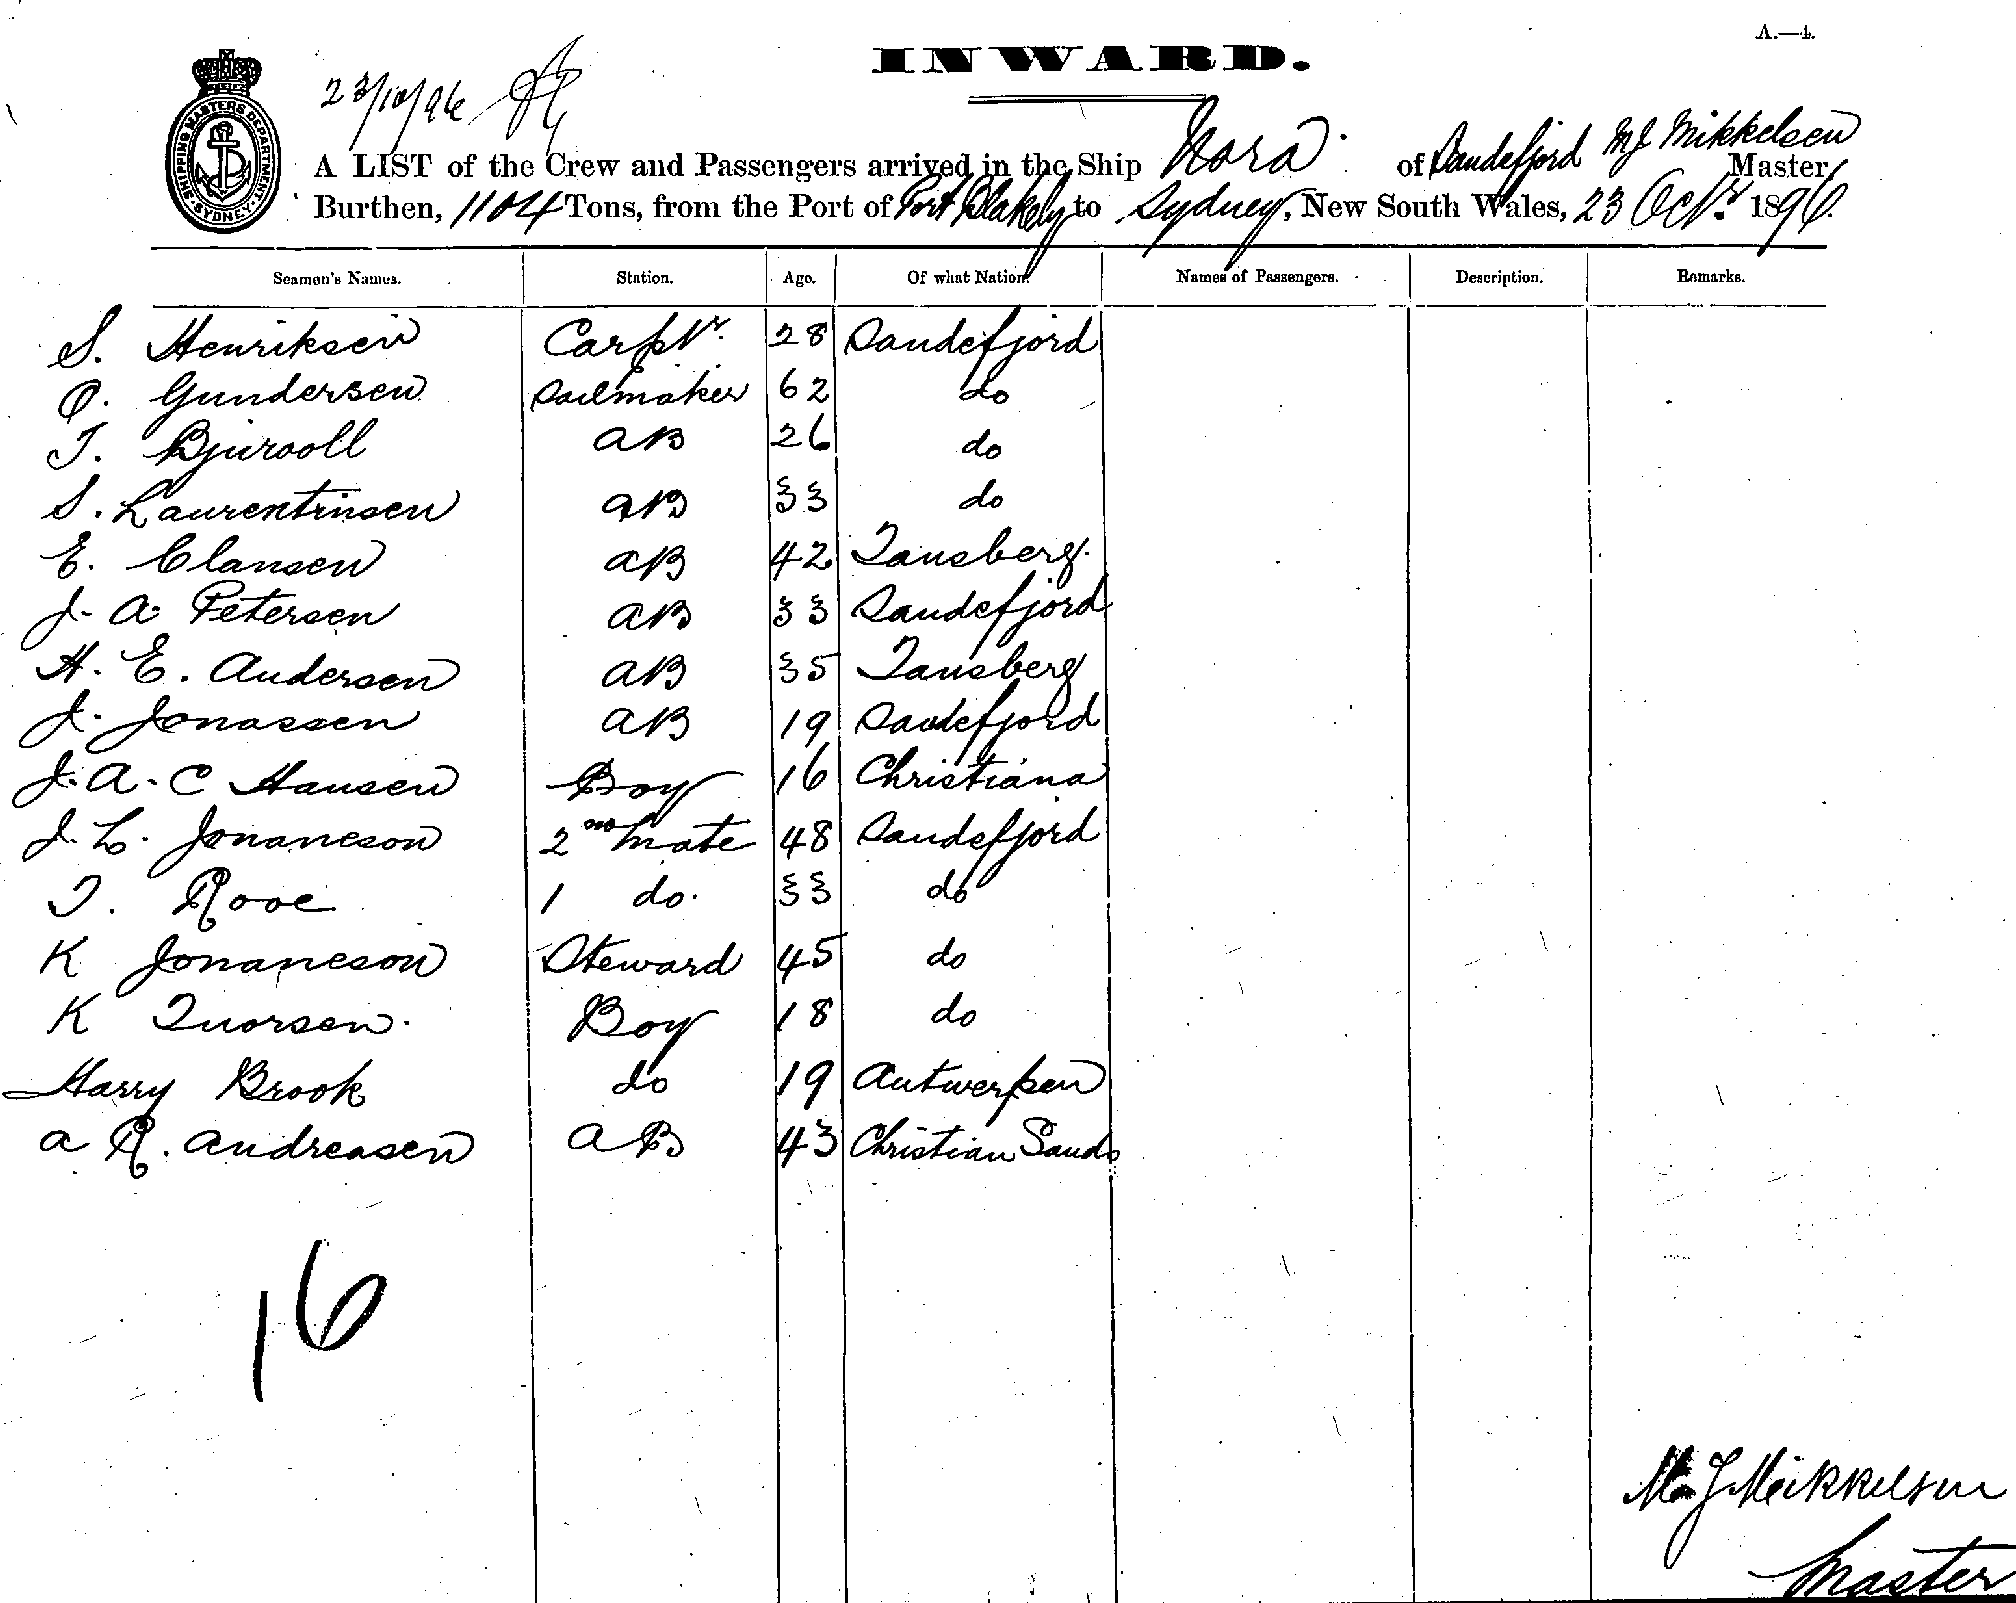 A.—4.
INWARD.
23/10/96
SHIPPING MASTERS DEPARTMENT SYDNEY
A LIST of the Crew and Passengers arrived in the Ship Nora of Sandefjord M J Mikkelsen Master,
Burthen, 1104 Tons, from the Port of Port Blakely to Sydney, New South Wales, 23 Octr 1896.
Seamen's Names. Station. Age. Of what Nation. Names of Passengers. Description. Remarks.
S. Henriksen Carptr. 28 Sandefjord
O. Gundersen Sailmaker 62 do
T. Bjurooll AB 26 do
S. Laurentinsen AB 33 do
E. Clansen AB 42 Tansberg.
J. A. Petersen AB 33 Sandefjord
H. E. Andersen AB 35 Tansberg
J. Jonassen AB 19 Sandefjord
J. A. C Hansen Boy 16 Christiana
J. L. Jonaneson 2nd Mate 48 Sandefjord
T. Rooe 1 do. 33 do
K Jonaneson Steward 45 do
K Tuorsen. Boy 18 do
Harry Brook do 19 Antwerpen
A R. Andreasen AB 43 Christian Sands
16
M J Mikkelsen
Master